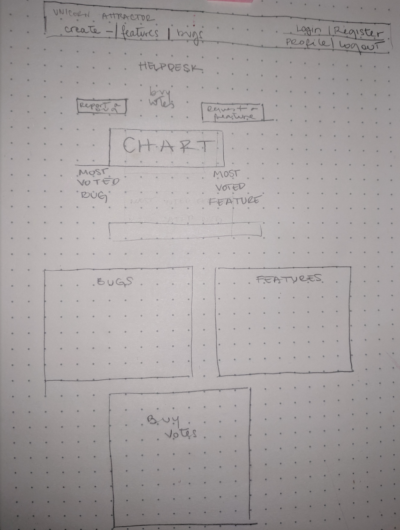 UNICORN ATTRACTOR
create - | features | bugs
Login | Register
Profile | Logout
HELPDESK
buy
votes
Report a
bug
Request a
feature
CHART
MOST
VOTED
BUG
MOST
VOTED
FEATURE
BUGS
FEATURES
Buy
votes